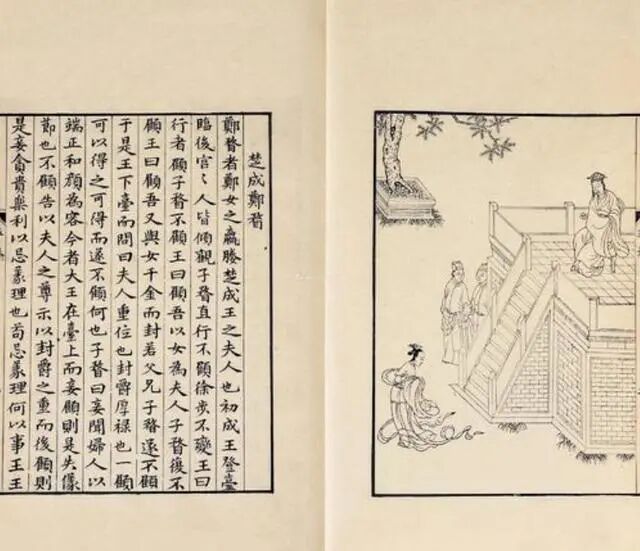 楚成鄭瞀
鄭瞀者鄭女之嬴媵楚成王之夫人也初成王登臺
臨後宮〻人皆傾觀子瞀直行不顧徐步不變王曰
行者顧子瞀不顧王曰顧吾以女為夫人子瞀復不
顧王曰顧吾又與女千金而封若父兄子瞀遂不顧
于是王下臺而問曰夫人重位也封爵厚祿也一顧
可以得之可得而遂不顧何也子瞀曰妾聞婦人以
端正和顏為容今者大王在臺上而妾顧則是失儀
節也不顧告以夫人之尊示以封爵之重而後顧則
是妾貪貴樂利以忘義理也苟忘義理何以事王王